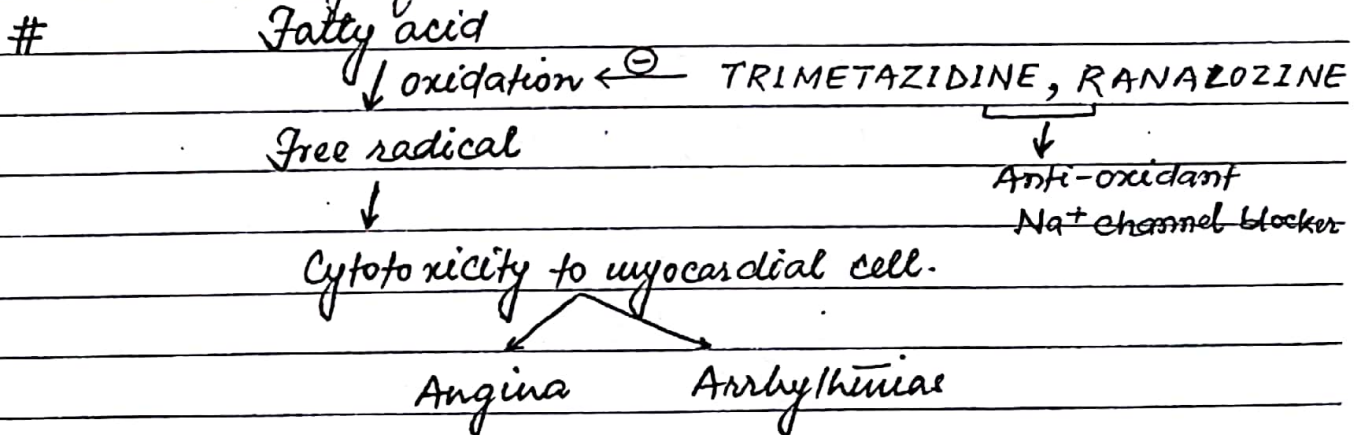 # Fatty acid
oxidation ← ⊖ TRIMETAZIDINE, RANALOZINE
Free radical
Anti-oxidant
Na⁺ channel blocker
Cytotoxicity to myocardial cell.
Angina Arrhythmias